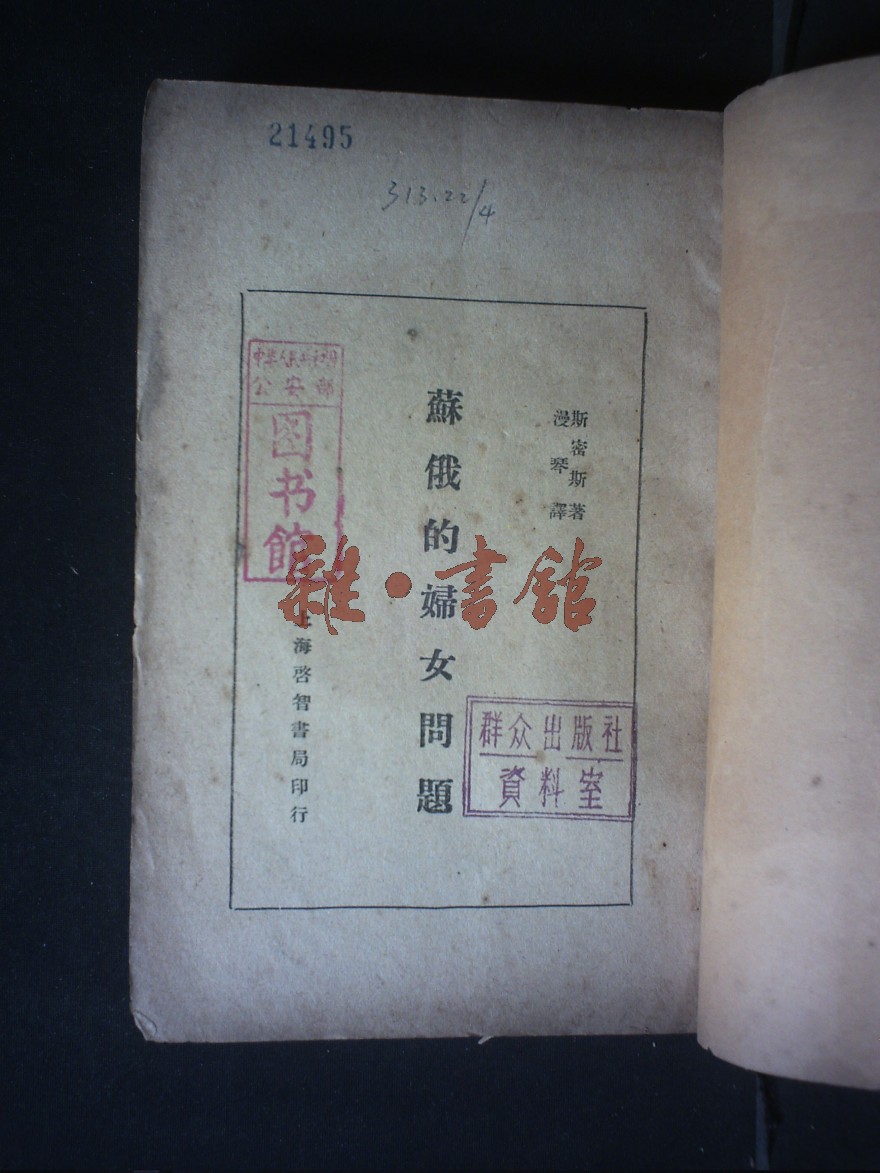 21495
313.22/4
斯密斯著
漫琴譯
蘇俄的婦女問題
上海啓智書局印行
公安部
图书馆
群众出版社
資料室
雜·書館